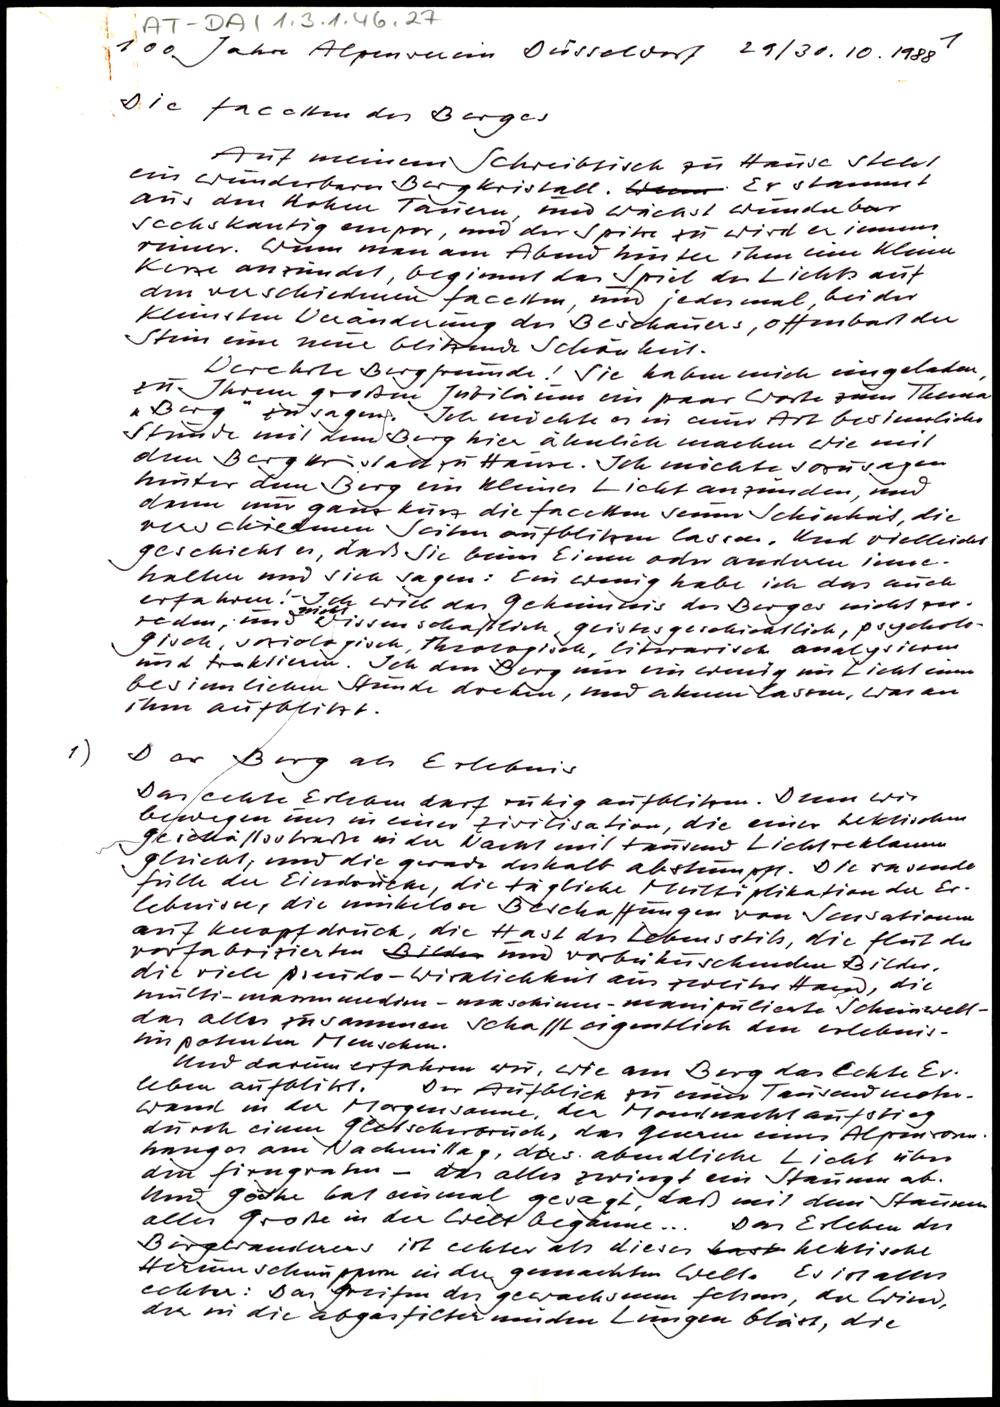 AT-DAI 1.3.1.46.27
1
100 Jahre Alpenverein Düsseldorf 29/30.10.1988
Die Facetten des Berges
Auf meinem Schreibtisch zu Hause steht
ein wunderbarer Bergkristall. Er stammt
aus den Hohen Tauern, und wächst wunderbar
sechskantig empor, und der Spitze zu wird er immer
reiner. Wenn man am Abend hinter ihm eine kleine
Kerze anzündet, beginnt das Spiel des Lichts auf
den verschiedenen Facetten, und jedesmal, bei der
kleinsten Veränderung des Beschauers, offenbart der
Stein eine neue blitzende Schönheit.
Verehrte Bergfreunde! Sie haben mich eingeladen,
zu Ihrem großen Jubiläum ein paar Worte zum Thema
"Berg" zu sagen. Ich möchte es in einer Art besinnlicher
Stunde mit dem Berg hier ähnlich machen wie mit
dem Bergkristall zu Hause. Ich möchte sozusagen
hinter dem Berg ein kleines Licht anzünden, und
dann nur ganz kurz die Facetten seiner Schönheit, die
verschiedenen Seiten aufblitzen lassen. Und vielleicht
geschieht es, daß Sie beim Einen oder anderen inne-
halten und sich sagen: Ein wenig habe ich das auch
erfahren! - Ich will das Geheimnis des Berges nicht zer-
reden, und nicht wissenschaftlich, geistesgeschichtlich, psycholo-
gisch, soziologisch, theologisch, literarisch analysieren
und traktieren. Ich den Berg nur ein wenig im Licht einer
besinnlichen Stunde drehen, und ahnen lassen, was an
ihm aufblitzt.
1) Der Berg als Erlebnis
Das echte Erleben darf ruhig aufblitzen. Denn wir
bewegen uns in einer Zivilisation, die einer hektischen
Geschäftsstraße in der Nacht mit tausend Lichtreklamen
gleicht, und die gerade deshalb abstumpft. Die rasende
Fülle der Eindrücke, die tägliche Multiplikation der Er-
lebnisse, die mühelose Beschaffungen von Sensationen
auf Knopfdruck, die Hast des Lebensstils, die Flut der
vorfabrizierten Bilder und vorbeihuschenden Bilder,
die viele pseudo-Wirklichkeit aus zweiter Hand, die
multi-massmedien-maschinen-manipulierte Scheinwelt -
das alles zusammen schafft eigentlich den erlebnis-
impotenten Menschen.
Und darum erfahren wir, wie am Berg das Echte Er-
leben aufblitzt. Der Aufblick zu einer Tausendmeter-
wand in der Morgensonne, der Mondnachtaufstieg
durch einen Gletscherbruch, das Queren eines Alpenrosen-
hanges am Nachmittag, das abendliche Licht über
den Firngraten - das alles zwingt ein Staunen ab.
Und Goethe hat einmal gesagt, daß mit dem Staunen
alles Große in der Welt beginne... Das Erleben des
Bergwanderers ist echter als dieses hektische
Herumschnuppern in der gemachten Welt. Es ist alles
echter: Das Greifen des gewachsenen Felsens, der Wind,
der in die abgasfiltermüden Lungen bläst, die